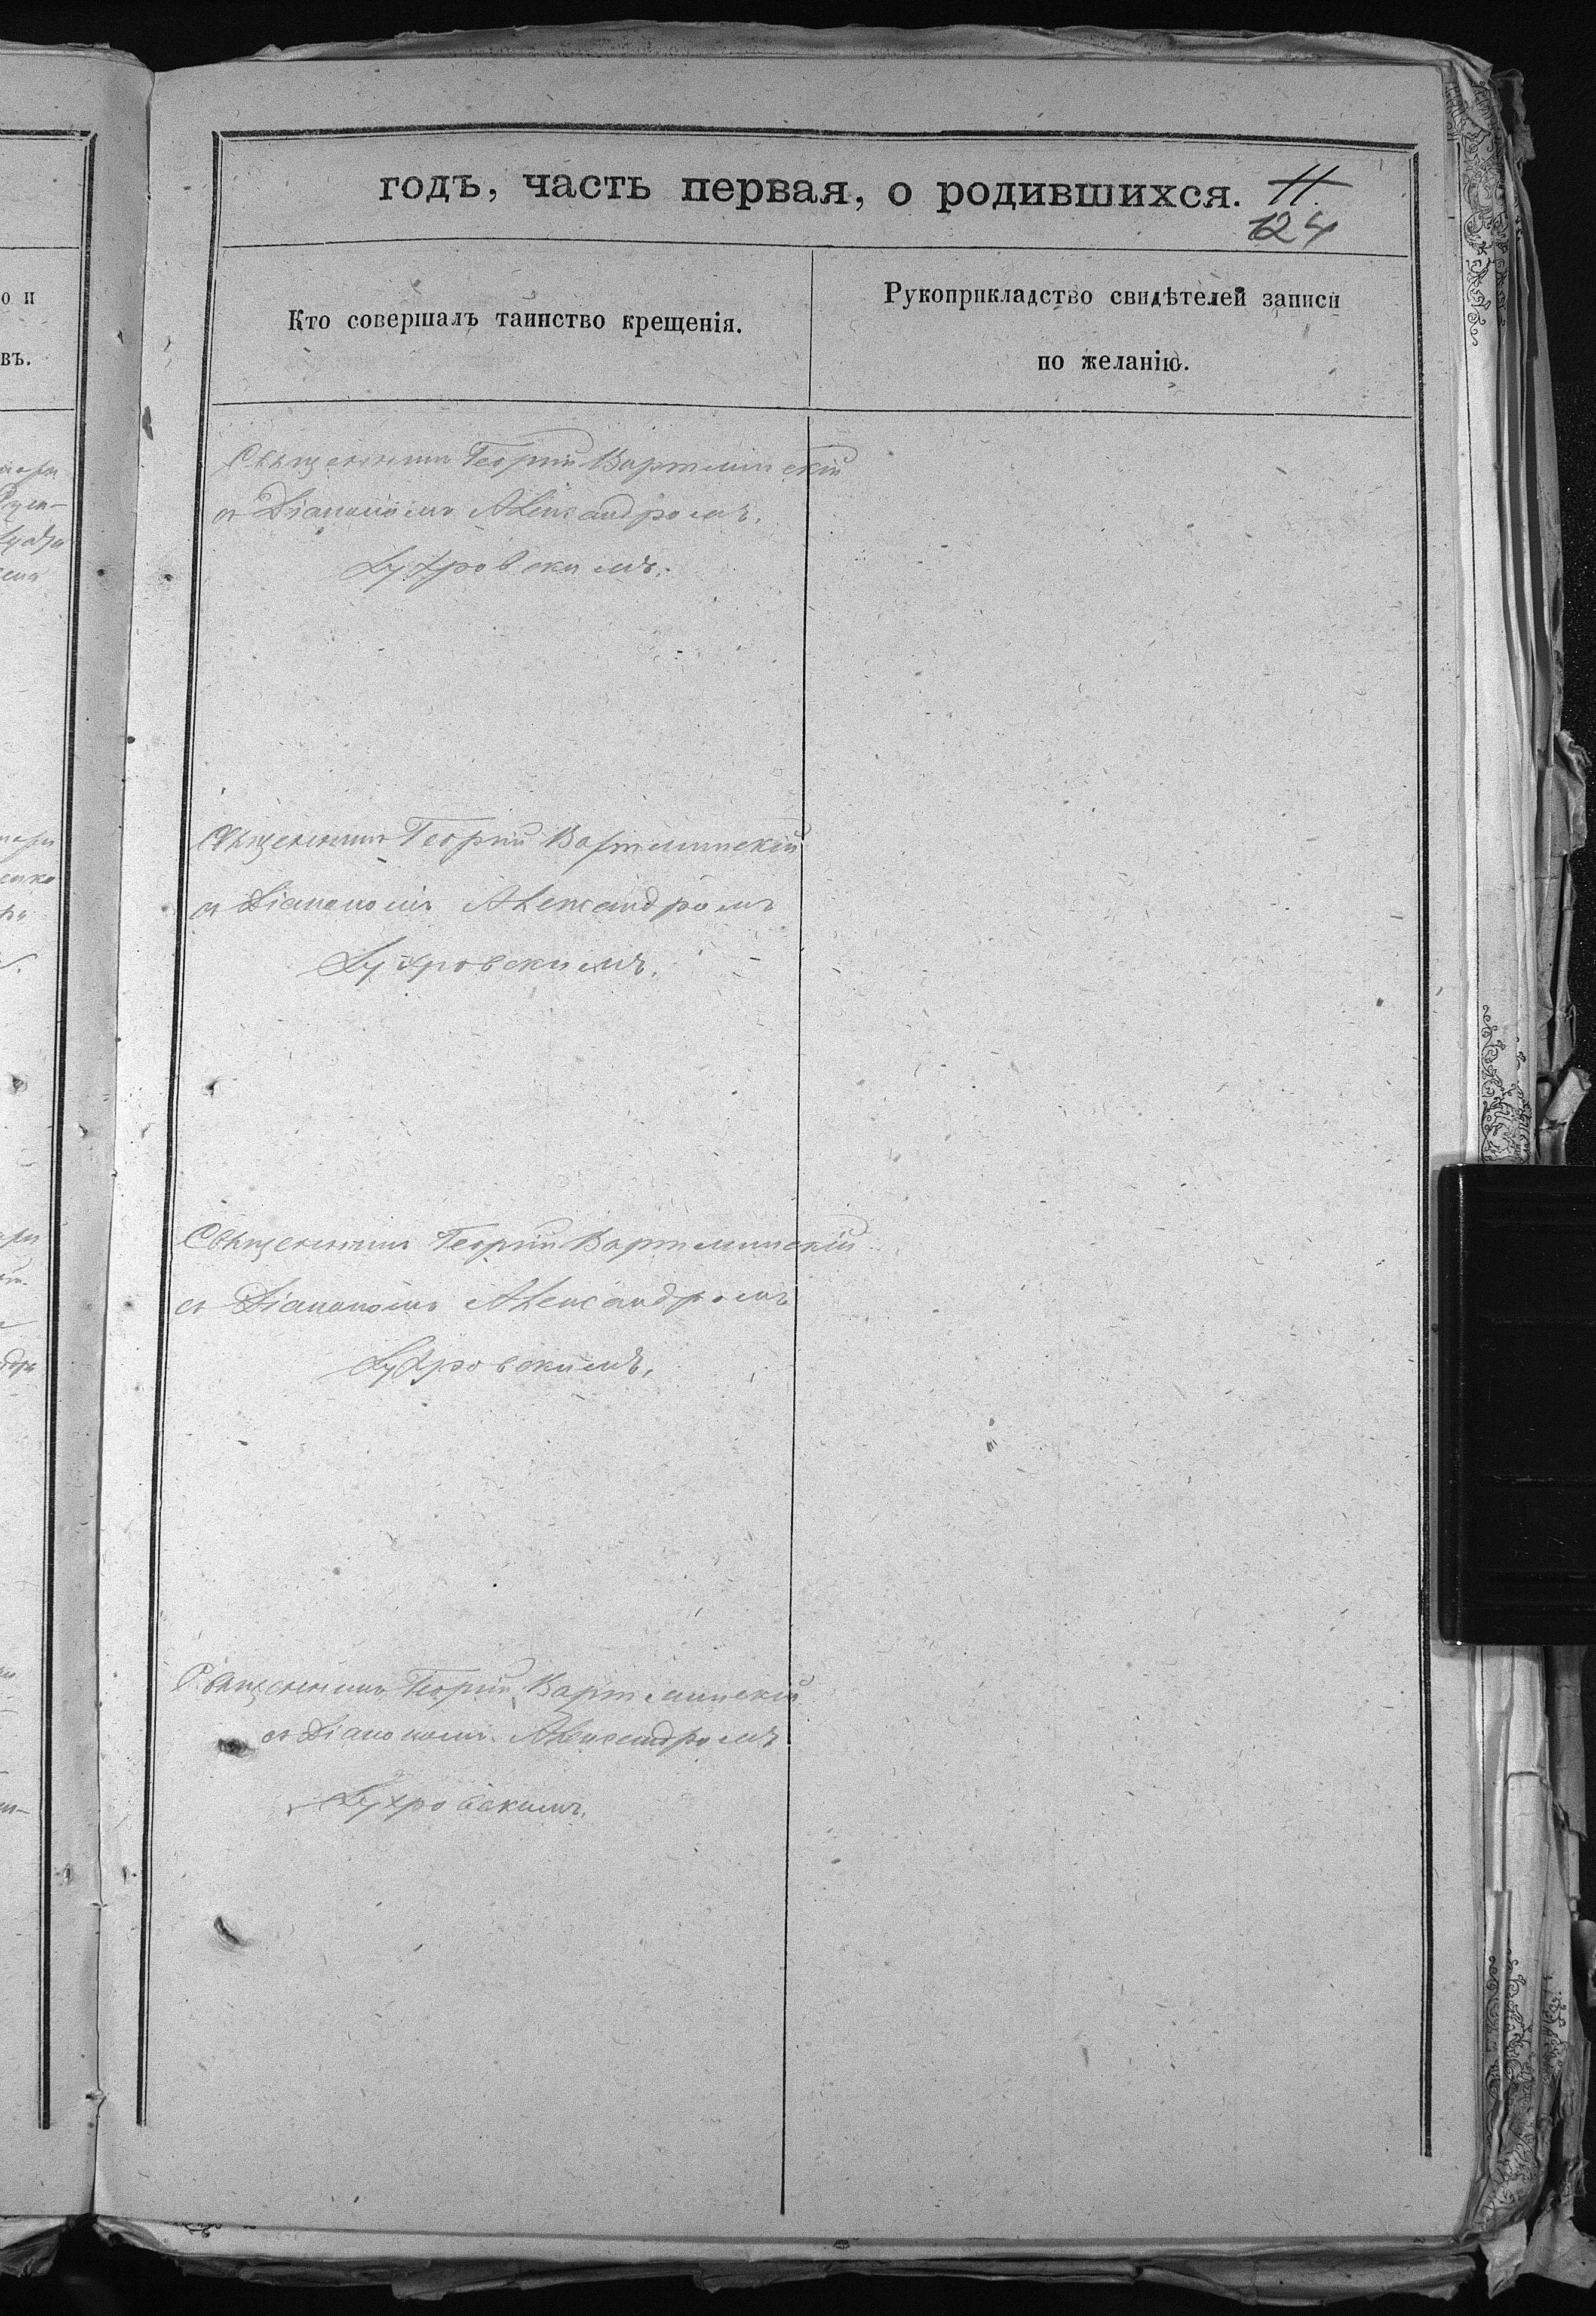 годъ, часть первая, о родившихся. 11
124
Кто совершалъ таинство крещенія.
Рукоприкладство свидѣтелей записи
по желанію.
о и
въ.
Священникъ Георгій Вартминскій
съ Діакономъ Александромъ
Духровскимъ.
Священникъ Георгій Вартминскій
съ Діакономъ Александромъ
Духровскимъ.
Священникъ Георгій Вартминскій
съ Діакономъ Александромъ
Духровскимъ.
Священникъ Георгій Вартминскій
съ Діакономъ Александромъ
Духровскимъ.